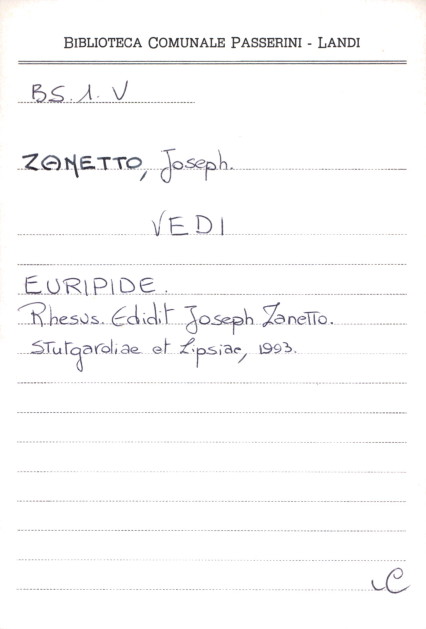 BIBLIOTECA COMUNALE PASSERINI - LANDI
BS. 1. V
ZANETTO, Joseph.
VEDI
EURIPIDE.
Rhesus. Edidit Joseph Zanetto.
Stutgardiae et Lipsiae, 1993.